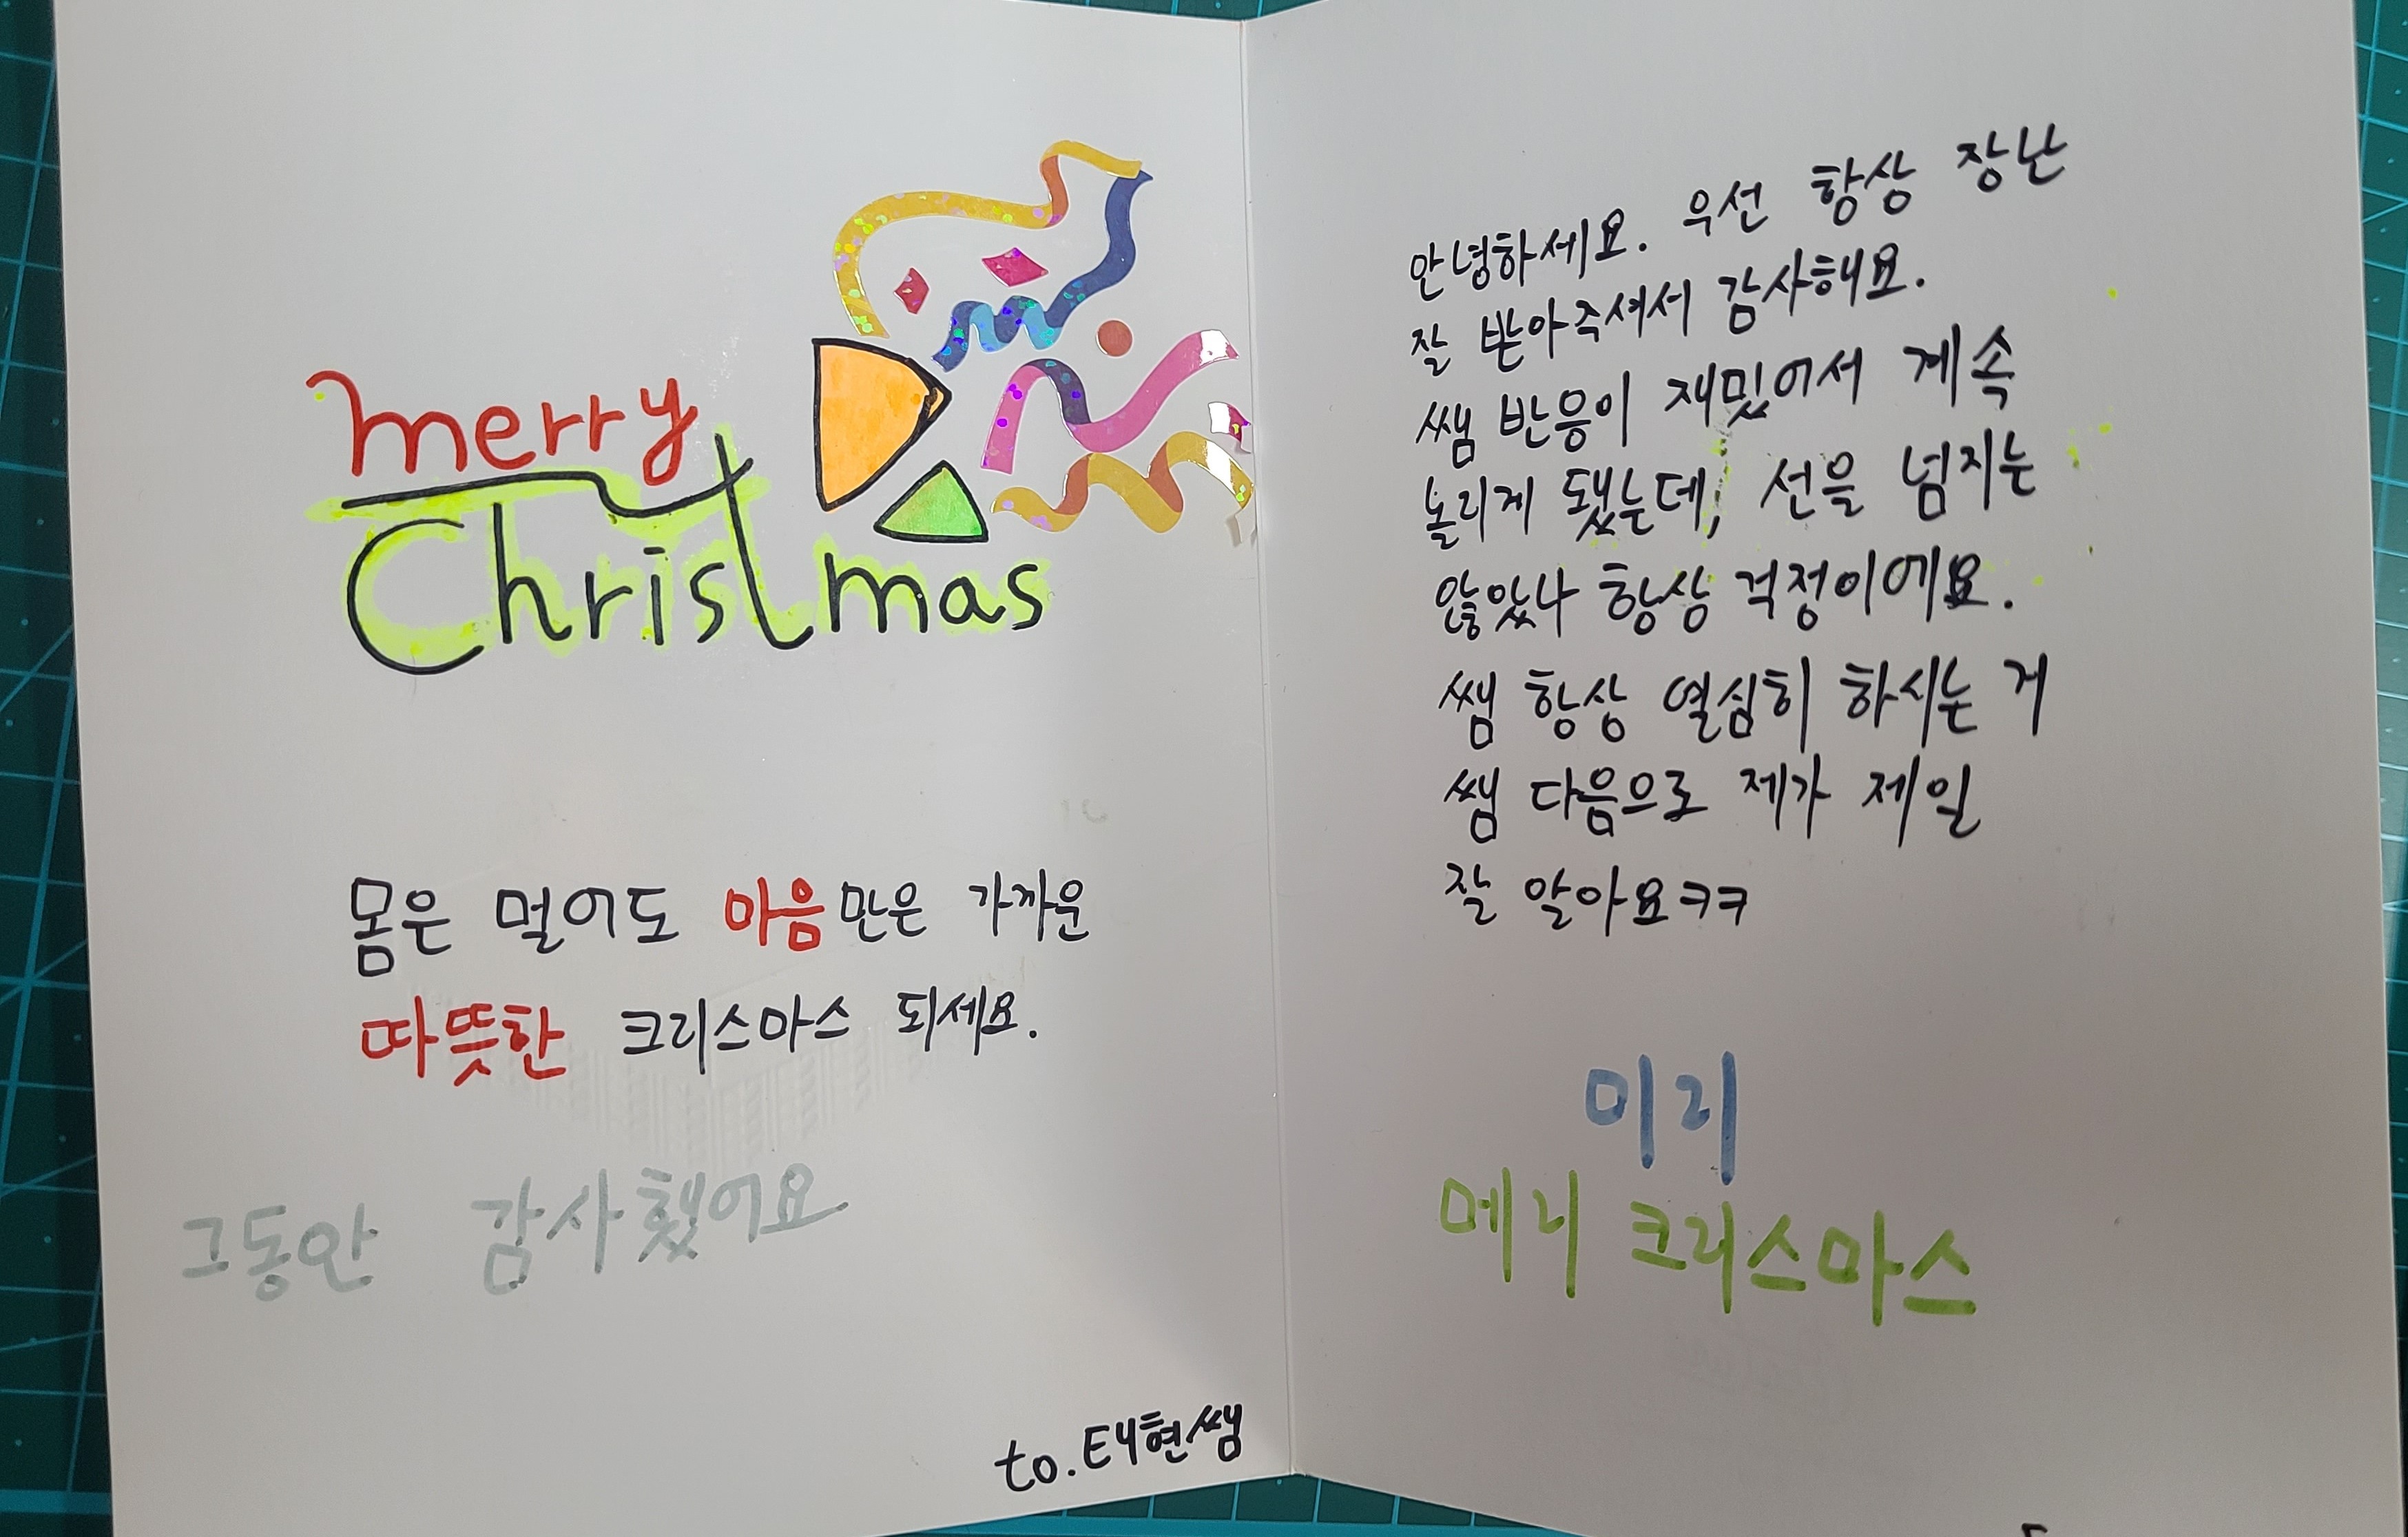 merry
Christmas
몸은 멀어도 마음만은 가까운
따뜻한 크리스마스 되세요.
그동안 감사했어요
to.태현쌤
안녕하세요. 우선 항상 장난
잘 받아주셔서 감사해요.
쌤 반응이 재밌어서 계속
놀리게 됐는데, 선을 넘지는
않았나 항상 걱정이에요.
쌤 항상 열심히 하시는 거
쌤 다음으로 제가 제일
잘 알아요ㅋㅋ
미리
메리 크리스마스